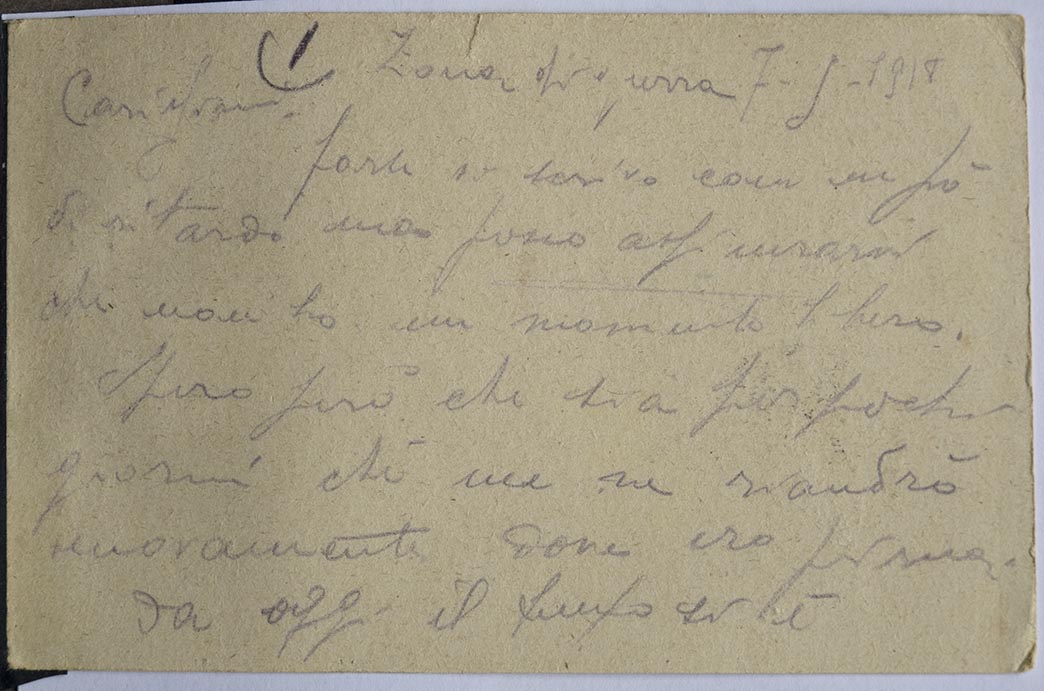 Zona di guerra 7-5-1918
Carissimi.
Forse vi scrivo con un pò
di ritardo ma posso assicurarvi
che non ho un momento libero.
Spero però che sia per pochi
giorni chè me ne riandrò
nuovamente dove ero prima.
Da oggi il tempo si è